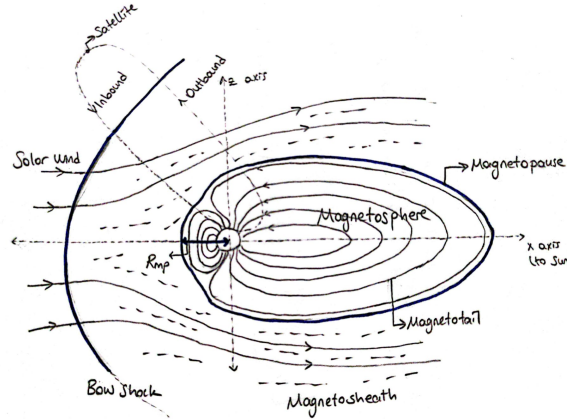 Satellite
Inbound
Outbound
z axis
Solar wind
Magnetopause
Magnetosphere
x axis
(to sun
Rmp
Magnetotail
Bow shock
Magnetosheath